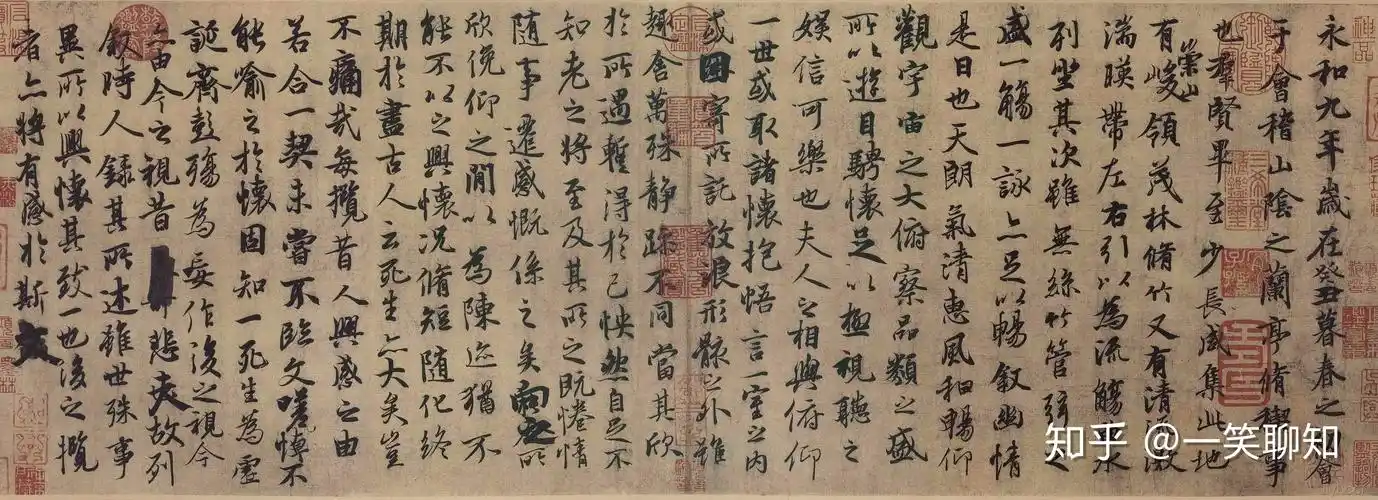 永和九年歲在癸丑暮春之會
于會稽山陰之蘭亭脩禊事
也羣賢畢至少長咸集此地
有崇山峻領茂林脩竹又有清流激
湍暎帶左右引以為流觴曲水
列坐其次雖無絲竹管弦之
盛一觴一詠亦足以暢叙幽情
是日也天朗氣清惠風和暢仰
觀宇宙之大俯察品類之盛
所以遊目騁懷足以極視聽之
娛信可樂也夫人之相與俯仰
一世或取諸懷抱悟言一室之內
或因寄所託放浪形骸之外雖
趣舍萬殊静躁不同當其欣
於所遇暫得於己怏然自足不
知老之將至及其所之既惓情
随事遷感慨係之矣向之所
欣俛仰之閒以為陳迹猶不
能不以之興懷況脩短随化終
期於盡古人云死生亦大矣豈
不痛哉每攬昔人興感之由
若合一契未嘗不臨文嗟悼不
能喻之於懷固知一死生為虛
誕齊彭殤為妄作後之視今
亦由今之視昔悲夫故列
叙時人錄其所述雖世殊事
異所以興懷其致一也後之攬
者亦將有感於斯文
知乎 @一笑聊知